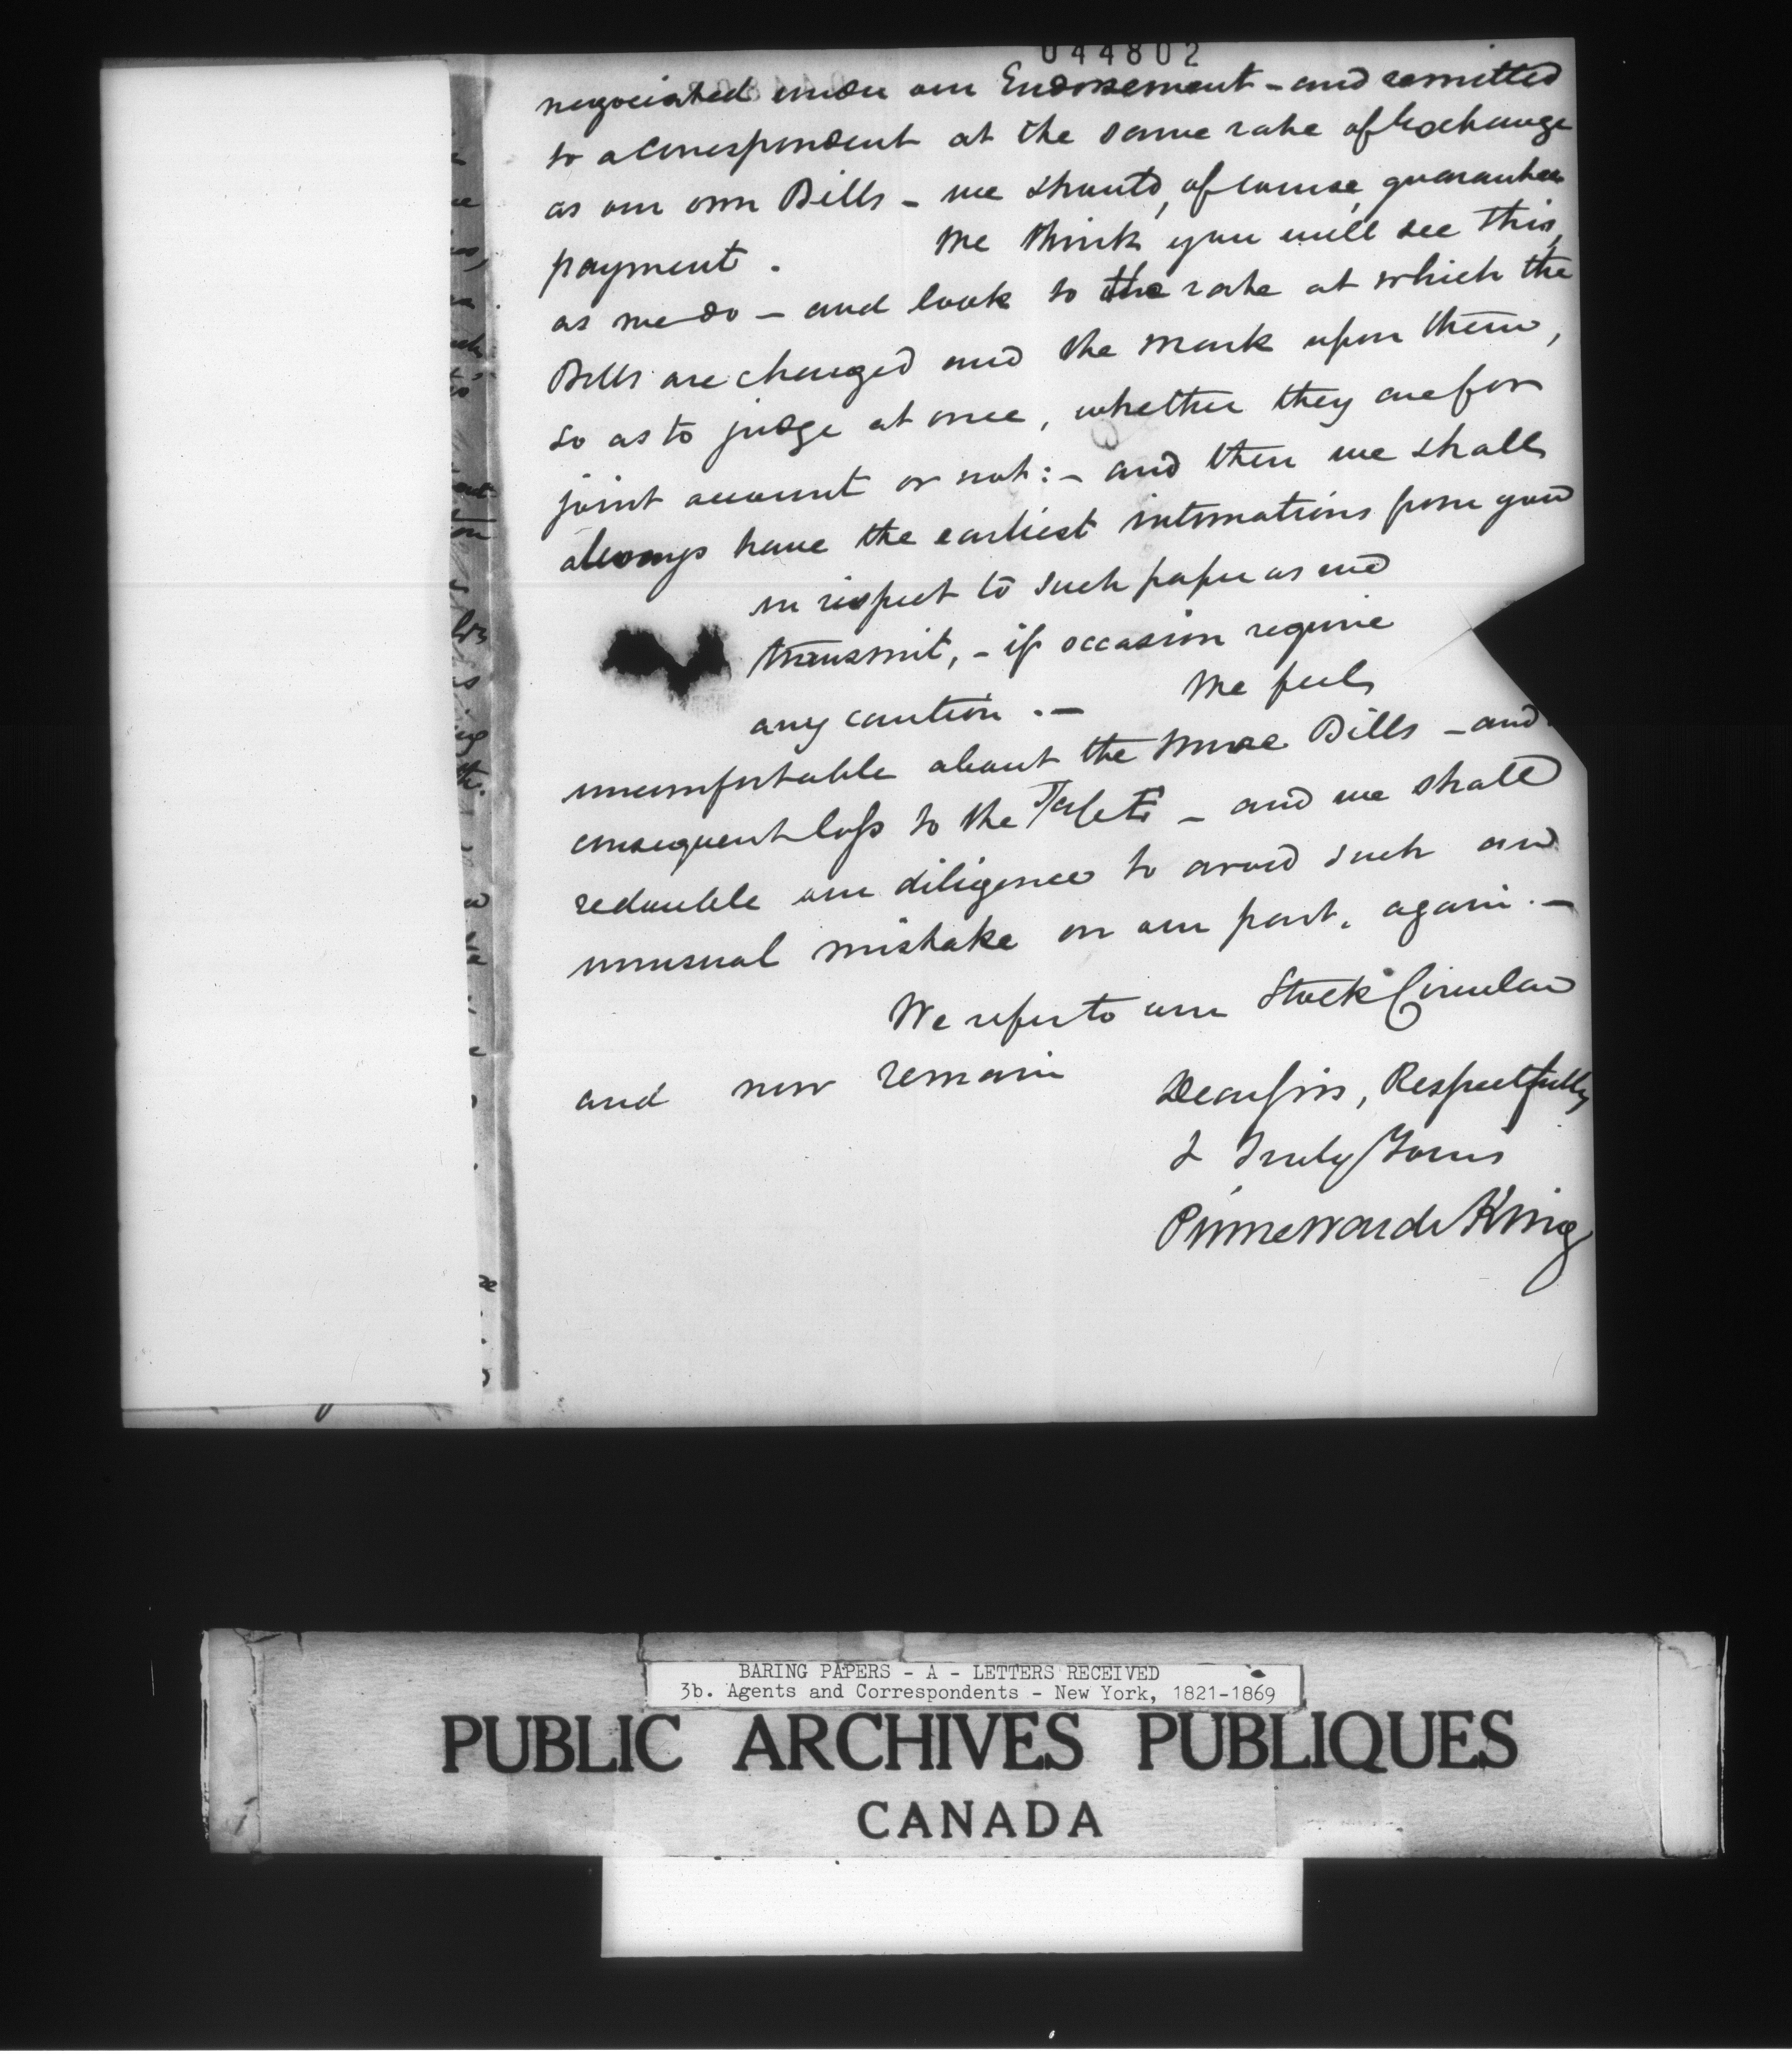 044802
negociated under our Endorsement - and remitted
to a Correspondent at the same rate of Exchange
as our own Bills - we should, of course, guarantee
payment. We think you will see this,
as we do - and look to the rate at which the
Bills are charged and the mark upon them,
so as to judge at once, whether they are for
joint account or not: - and then we shall
always have the earliest intimations from you
in respect to such paper as we
transmit, - if occasion require
any caution. - We feel
uncomfortable about the Bills - and
consequent loss to the - and we shall
redouble our diligence to avoid such an
unusual mistake on our part, again. -
We refer to our Stock Circular
and now remain
Dear Sirs, Respectfully
& Truly Yours
Prime Ward & King
BARING PAPERS - A - LETTERS RECEIVED
3b. Agents and Correspondents - New York, 1821-1869
PUBLIC ARCHIVES PUBLIQUES
CANADA